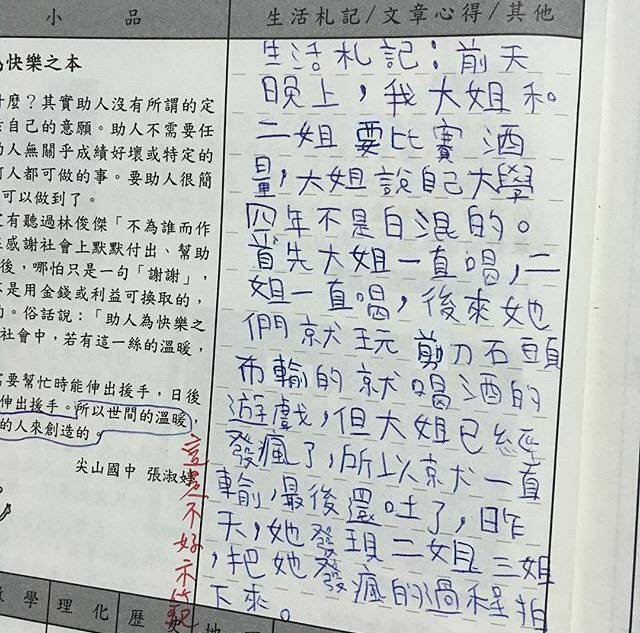 小品
為快樂之本
什麼？其實助人沒有所謂的定
自己的意願。助人不需要任
人無關乎成績好壞或特定的
人都可做的事。要助人很簡
可以做到了。
有聽過林俊傑「不為誰而作
感謝社會上默默付出、幫助
後，哪怕只是一句「謝謝」，
是用金錢或利益可換取的，
。俗話說：「助人為快樂之
社會中，若有這一絲的溫暖，
需要幫忙時能伸出援手，日後
伸出援手。所以世間的溫暖，
的人來創造的。
尖山國中 張淑婷
生活札記/文章心得/其他
生活札記：前天
晚上，我大姐和。
二姐要比賽酒
量，大姐說自己大學
四年不是白混的。
首先大姐一直喝，二
姐一直喝，後來她
們就玩剪刀石頭
布輸的就喝酒的
遊戲，但大姐已經
發瘋了，所以就一直
輸，最後還吐了，昨
天，她發現二姐三姐
，把她發瘋的過程拍
下來。
這是不好示範
學 理 化 歷 史 地